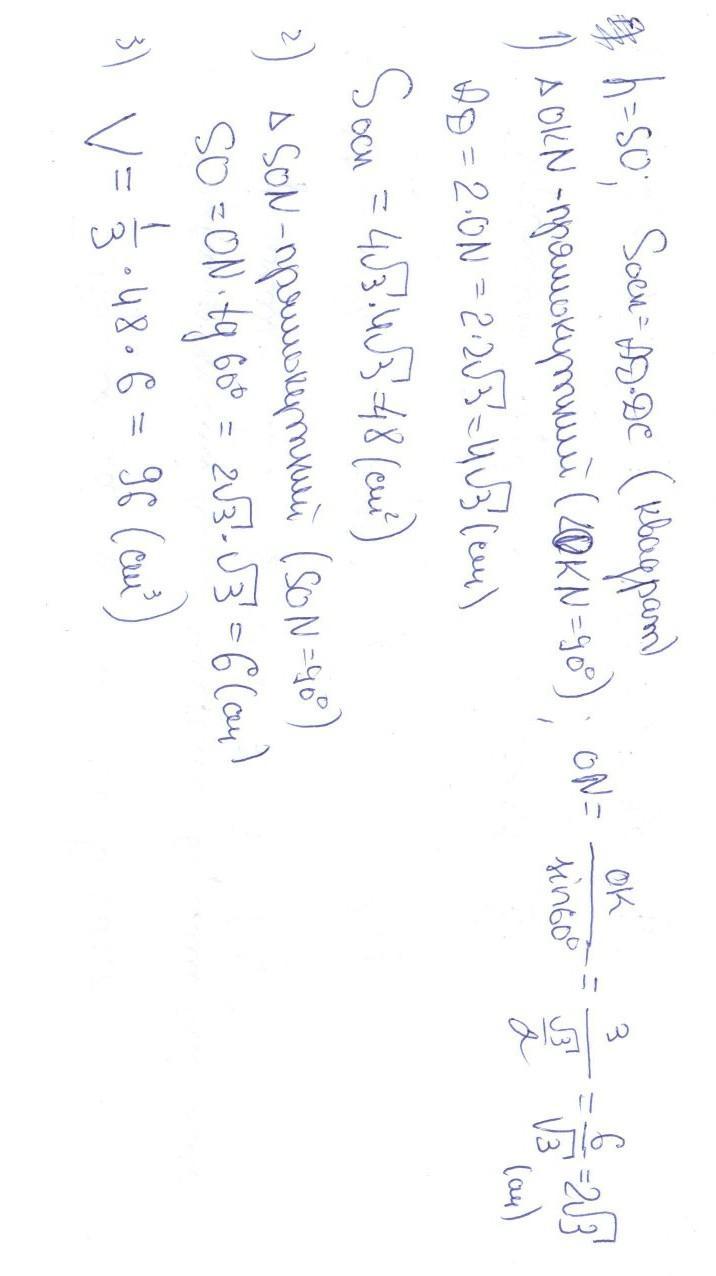 h=SO; Sосн=AD·DC (квадрат)
1) Δ OKN-прямокутний (∠OKN=90°); ON= OK/sin60° = 3/(√3/2) = 6/√3 =2√3 (см)
AD = 2·ON = 2·2√3 = 4√3 (см)
Sосн = 4√3·4√3=48 (см²)
2) Δ SON-прямокутний (SON=90°)
SO = ON·tg 60° = 2√3·√3 = 6 (см)
3) V = 1/3 · 48 · 6 = 96 (см³)